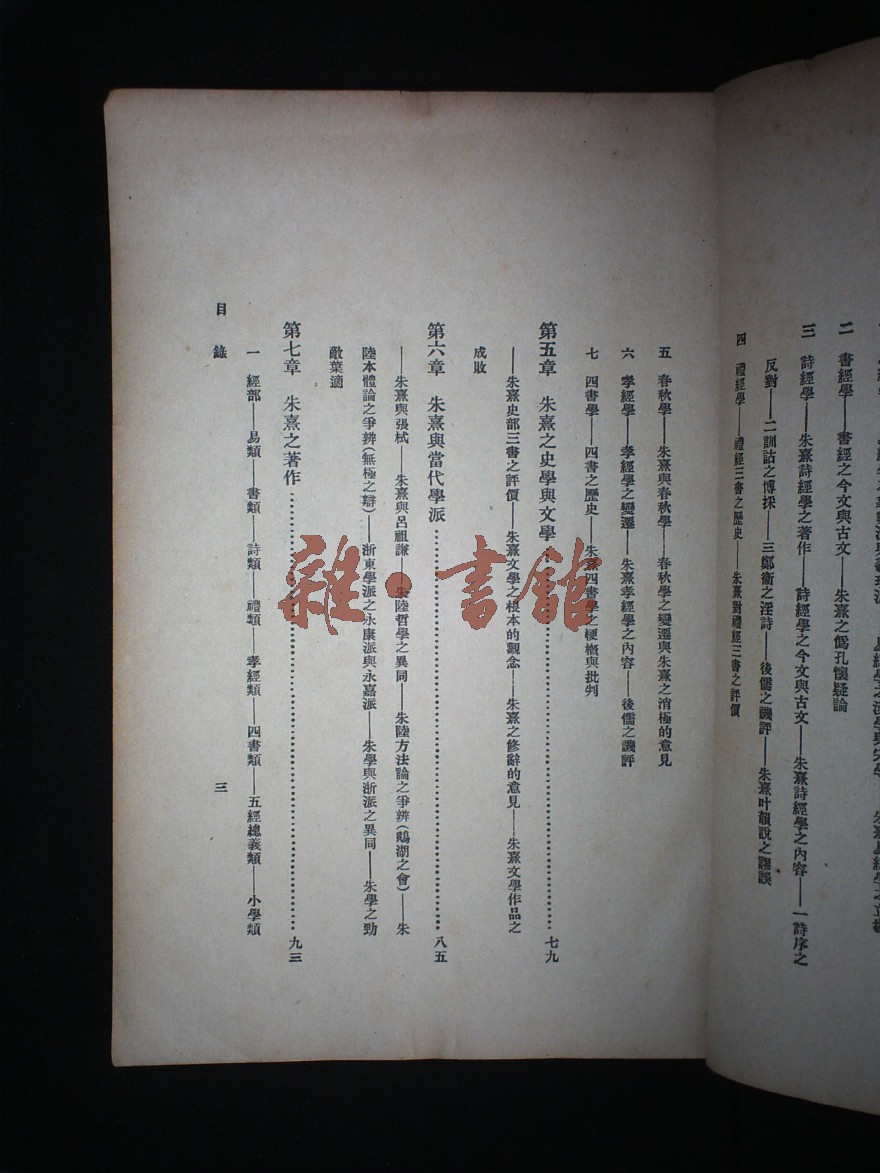 二　書經學——書經之今文與古文——朱熹之僞孔懷疑論
三　詩經學——朱熹詩經學之著作——詩經學之今文與古文——朱熹詩經學之內容——一詩序之
反對——二訓詁之博採——三鄭衞之淫詩——後儒之譏評——朱熹叶韻說之謬誤
四　禮經學——禮經三書之歷史——朱熹對禮經三書之評價
五　春秋學——朱熹與春秋學——春秋學之變遷與朱熹之消極的意見
六　孝經學——孝經學之變遷——朱熹孝經學之內容——後儒之譏評
七　四書學——四書之歷史——朱熹四書學之梗概與批判
第五章　朱熹之史學與文學……七九
——朱熹史部三書之評價——朱熹文學之根本的觀念——朱熹之修辭的意見——朱熹文學作品之
成敗
第六章　朱熹與當代學派……八五
——朱熹與張栻——朱熹與呂祖謙——朱陸哲學之異同——朱陸方法論之爭辨(鵝湖之會)——朱
陸本體論之爭辨(無極之辯)——浙東學派之永康派與永嘉派——朱學與浙派之異同——朱學之勁
敵葉適
第七章　朱熹之著作……九三
一　經部——易類——書類——詩類——禮類——孝經類——四書類——五經總義類——小學類
目錄
三
雜·書館